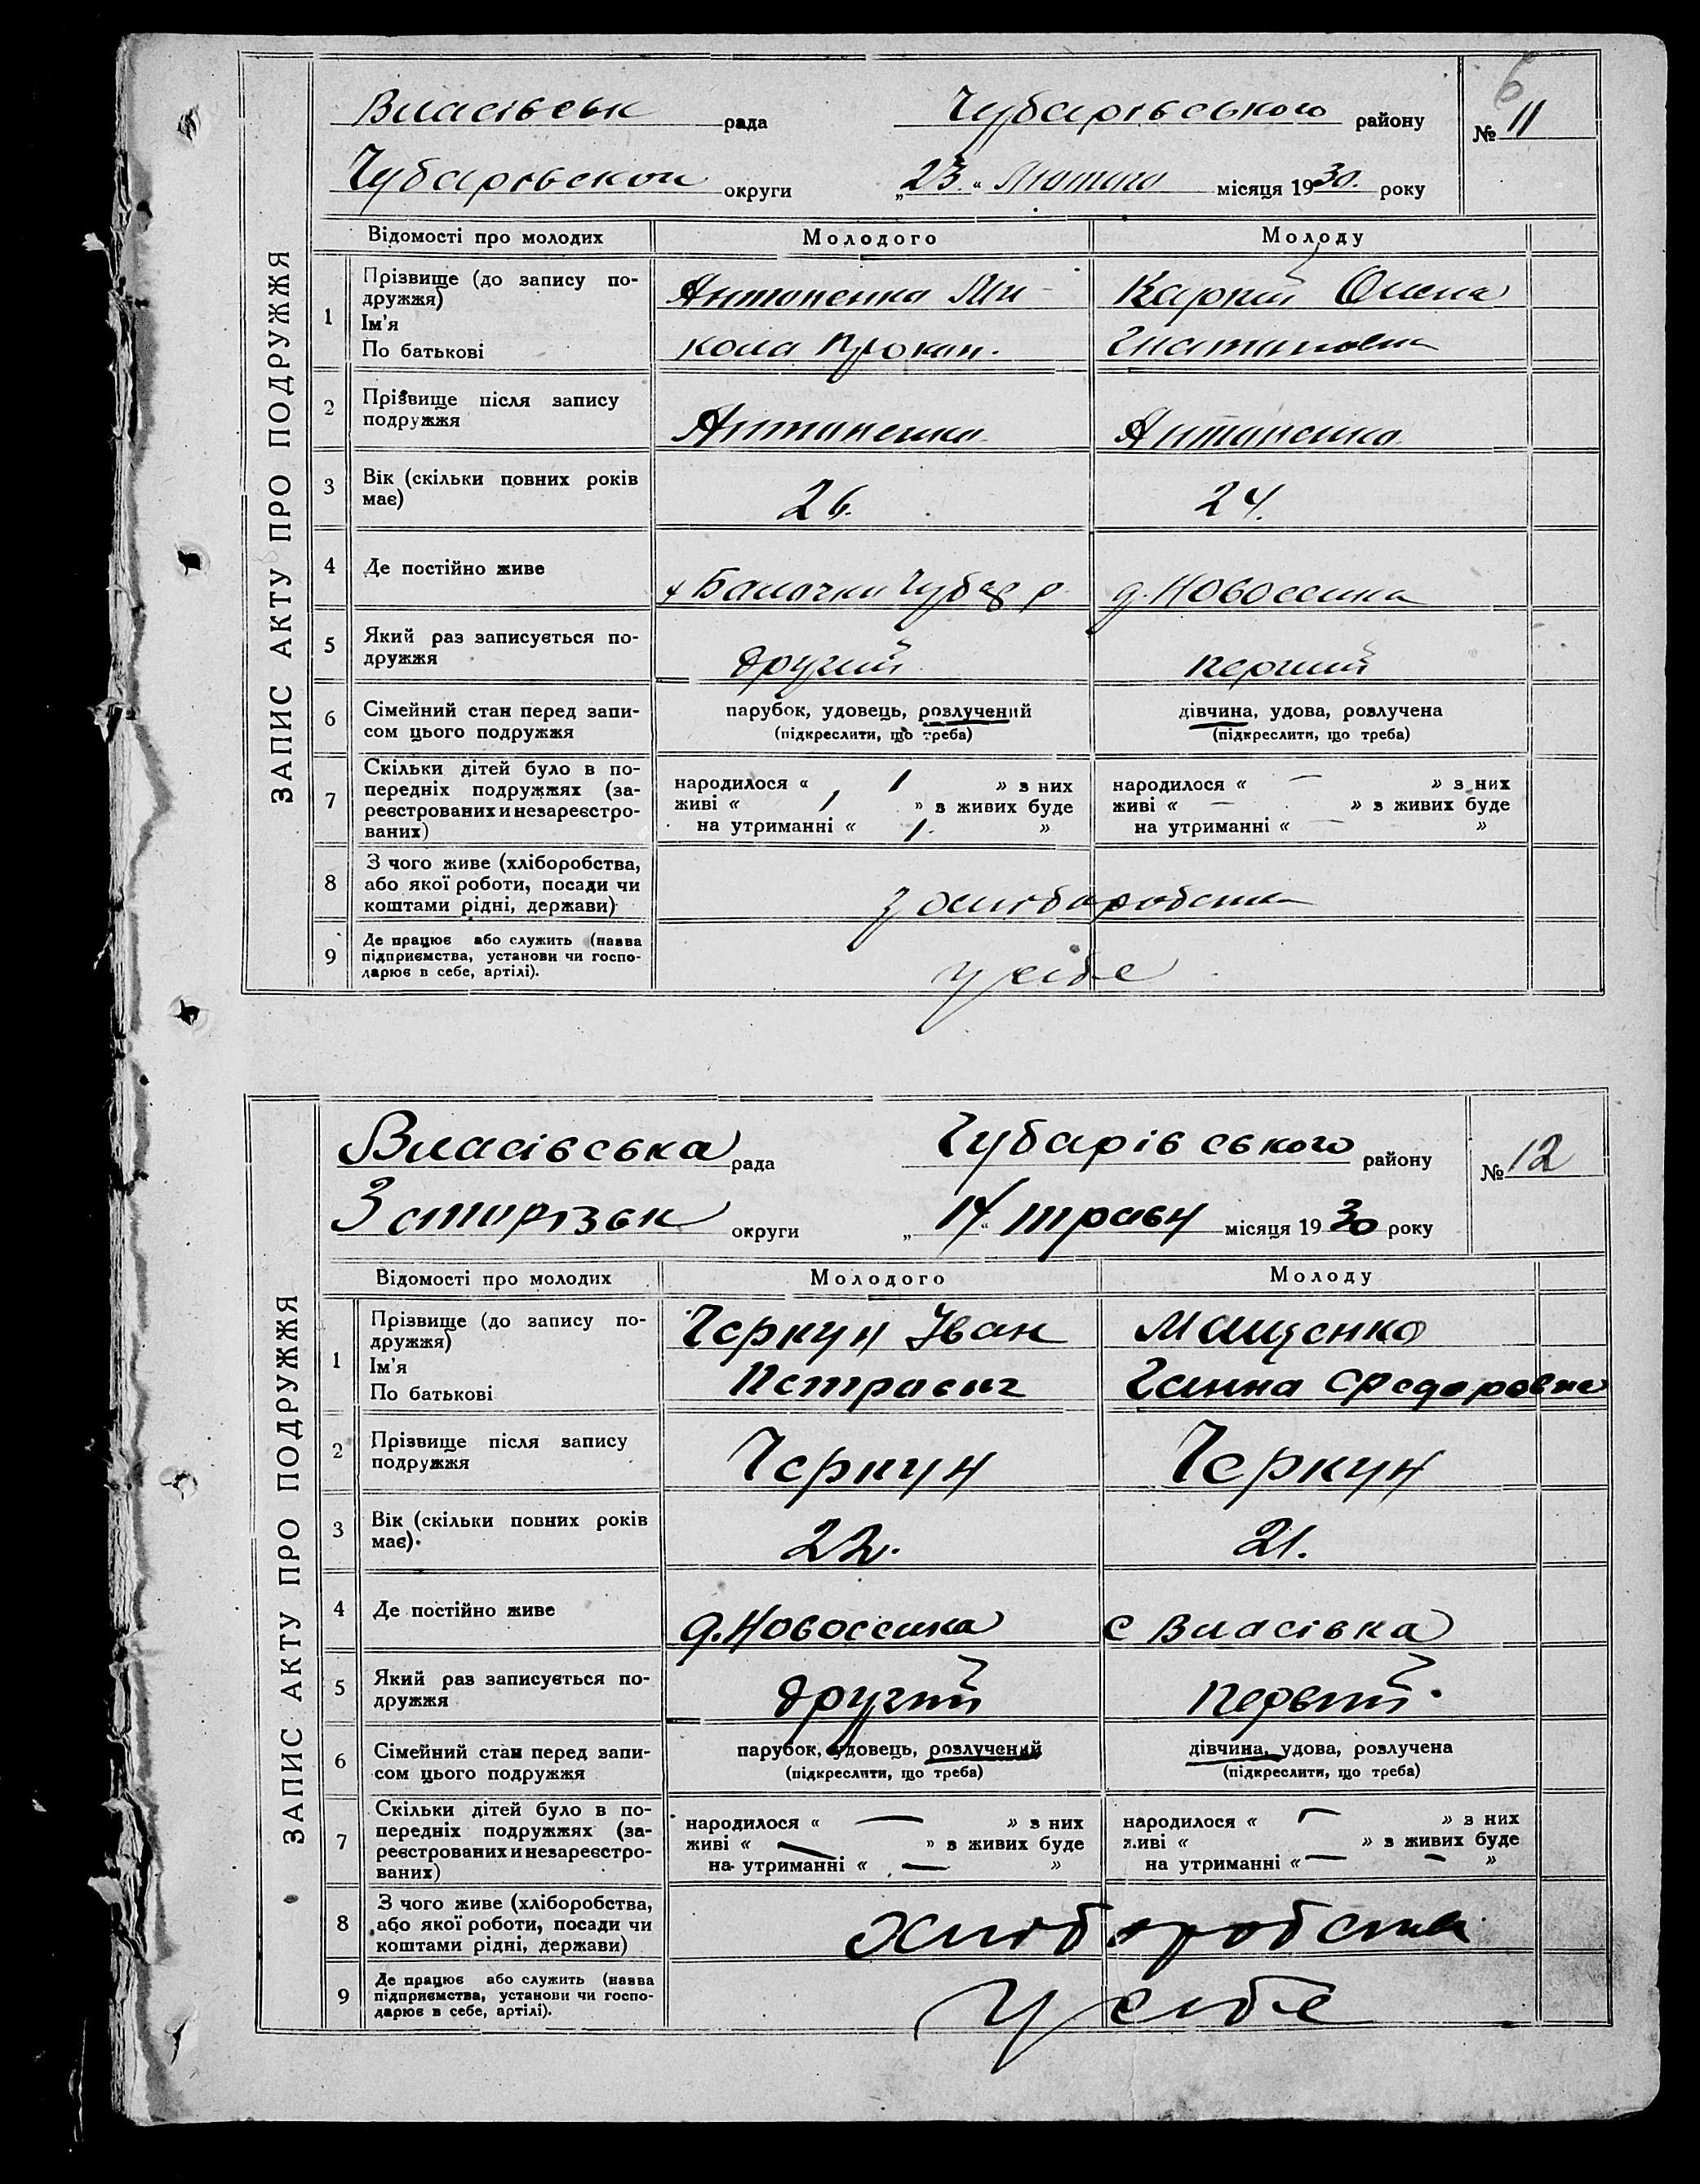 ЗАПИС АКТУ ПРО ПОДРУЖЖЯ
6
Власівськ рада Чубарівського району № 11
Чубарівськои округи „23“ Лютого місяця 1930. року
Відомості про молодих Молодого Молоду
1 Прізвище (до запису по-
дружжя)
Ім'я
По батькові
Антоненко Ми-
кола Прокоп.
Карпій Олена
Гнатановна
2 Прізвище після запису
подружжя
Антоненко Антоненко
3 Вік (скільки повних років
має)
26. 24.
4 Де постійно живе
х Балочки Чубар р. д. Новоселика
5 Який раз записується по-
дружжя
другий первий
6 Сімейний стан перед запи-
сом цього подружжя
парубок, удовець, розлучений
(підкреслити, що треба)
дівчина, удова, розлучена
(підкреслити, що треба)
7 Скільки дітей було в по-
передніх подружжях (за-
реєстрованих и незареєстро-
ваних)
народилося « 1 » з них
живі « 1 » з живих буде
на утриманні « 1. »
народилося « — » з них
живі « — » з живих буде
на утриманні « — »
8 З чого живе (хліборобства,
або якої роботи, посади чи
коштами рідні, держави)
з хліборобства
9 Де працює або служить (назва
підприємства, установи чи госпо-
дарює в себе, артілі).
у себе
ЗАПИС АКТУ ПРО ПОДРУЖЖЯ
Власівська рада Чубарівського району № 12
округи „14“ травн місяця 1930 року
Відомості про молодих Молодого Молоду
1 Прізвище (до запису по-
дружжя)
Ім'я
По батькові
Черкун Іван
Петрович
Мащенко
Ганна Федоровна
2 Прізвище після запису
подружжя
Черкун Черкун
3 Вік (скільки повних років
має).
22. 21.
4 Де постійно живе
д. Новоселика с Власівка
5 Який раз записується по-
дружжя
другий первий.
6 Сімейний стан перед запи-
сом цього подружжя
парубок, удовець, розлучений
(підкреслити, що треба)
дівчина, удова, розлучена
(підкреслити, що треба)
7 Скільки дітей було в по-
передніх подружжях (за-
реєстрованих и незареєстро-
ваних)
народилося « — » з них
живі « — » з живих буде
на утриманні « — »
народилося « — » з них
живі « » з живих буде
на утриманні « — — »
8 З чого живе (хліборобства,
або якої роботи, посади чи
коштами рідні, держави)
хліборобства
9 Де працює або служить (назва
підприємства, установи чи госпо-
дарює в себе, артілі).
у себе